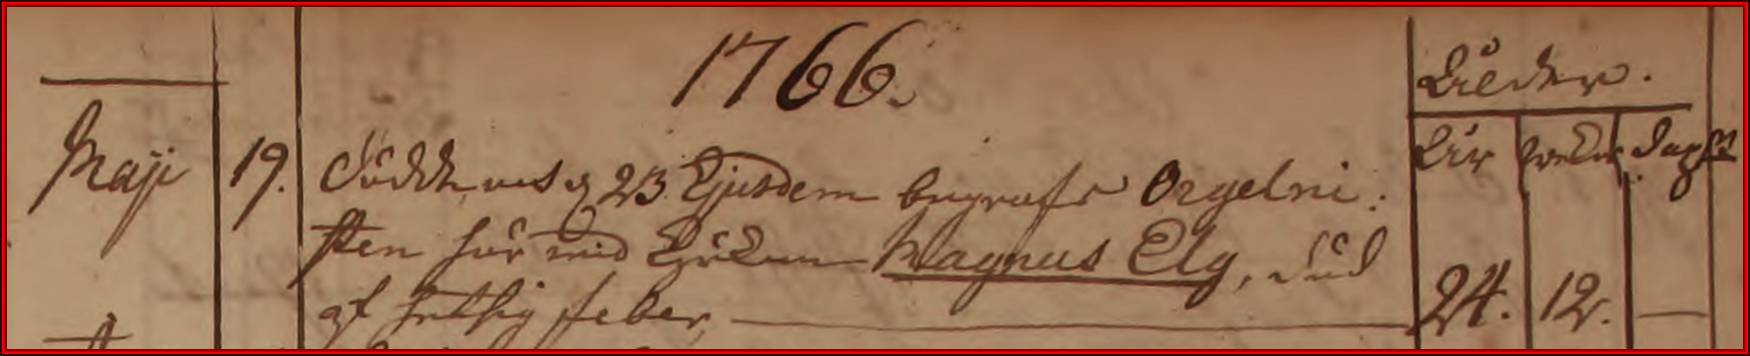 1766.
Ålder.
År weckor dagar
Maji 19. dödde, och d. 23. Ejusdem begrofs Orgelni:
sten här wid Kyrkan Magnus Elg, död
af hetsig feber, 24. 12.